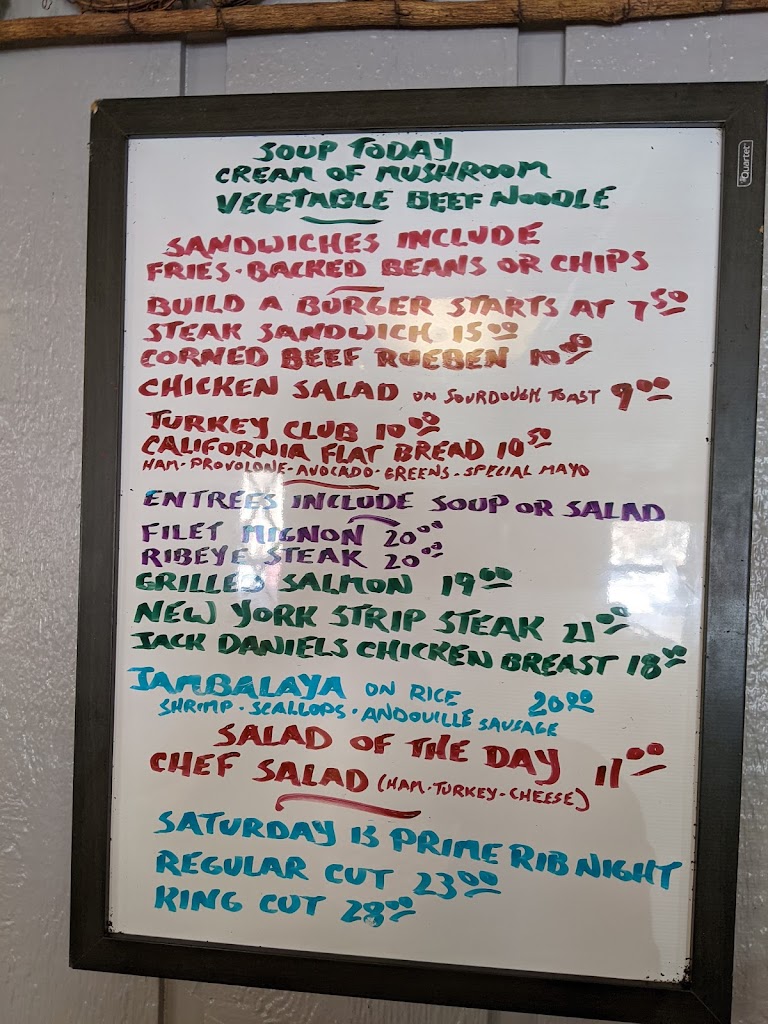 Quartet
SOUP TODAY
CREAM OF MUSHROOM
VEGETABLE BEEF NOODLE
SANDWICHES INCLUDE
FRIES·BACKED BEANS OR CHIPS
BUILD A BURGER STARTS AT 7 50
STEAK SANDWICH 15 00
CORNED BEEF RUEBEN 10 00
CHICKEN SALAD ON SOURDOUGH TOAST 9 00
TURKEY CLUB 10 00
CALIFORNIA FLAT BREAD 10 50
HAM-PROVOLONE-AVOCADO-GREENS-SPECIAL MAYO
ENTREES INCLUDE SOUP OR SALAD
FILET MIGNON 20 00
RIBEYE STEAK 20 00
GRILLED SALMON 19 00
NEW YORK STRIP STEAK 21 00
JACK DANIELS CHICKEN BREAST 18 00
JAMBALAYA ON RICE 20 00
SHRIMP-SCALLOPS-ANDOUILLE SAUSAGE
SALAD OF THE DAY
CHEF SALAD (HAM-TURKEY-CHEESE) 11 00
SATURDAY IS PRIME RIB NIGHT
REGULAR CUT 23 00
KING CUT 28 00